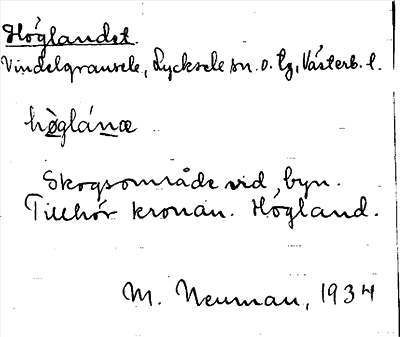 Höglandet.
Vindelgransele, Lycksele sn. o. tg, Västerb. l.
hö̀glánæ
Skogsområde vid byn.
Tillhör kronan. Högland.
M. Neuman, 1934